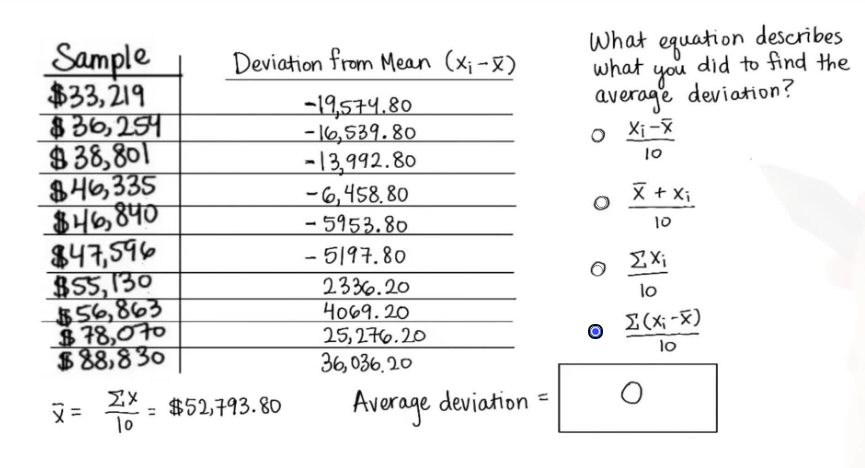 Sample
Deviation from Mean (xᵢ-x̄)
$33,219 -19,574.80
$36,254 -16,539.80
$38,801 -13,992.80
$46,335 -6,458.80
$46,840 -5953.80
$47,596 -5197.80
$55,130 2336.20
$56,863 4069.20
$78,070 25,276.20
$88,830 36,036.20
x̄ = Σx/10 = $52,793.80
Average deviation = 0
What equation describes
what you did to find the
average deviation?
(xᵢ-x̄)/10
(x̄ + xᵢ)/10
Σxᵢ/10
Σ(xᵢ-x̄)/10